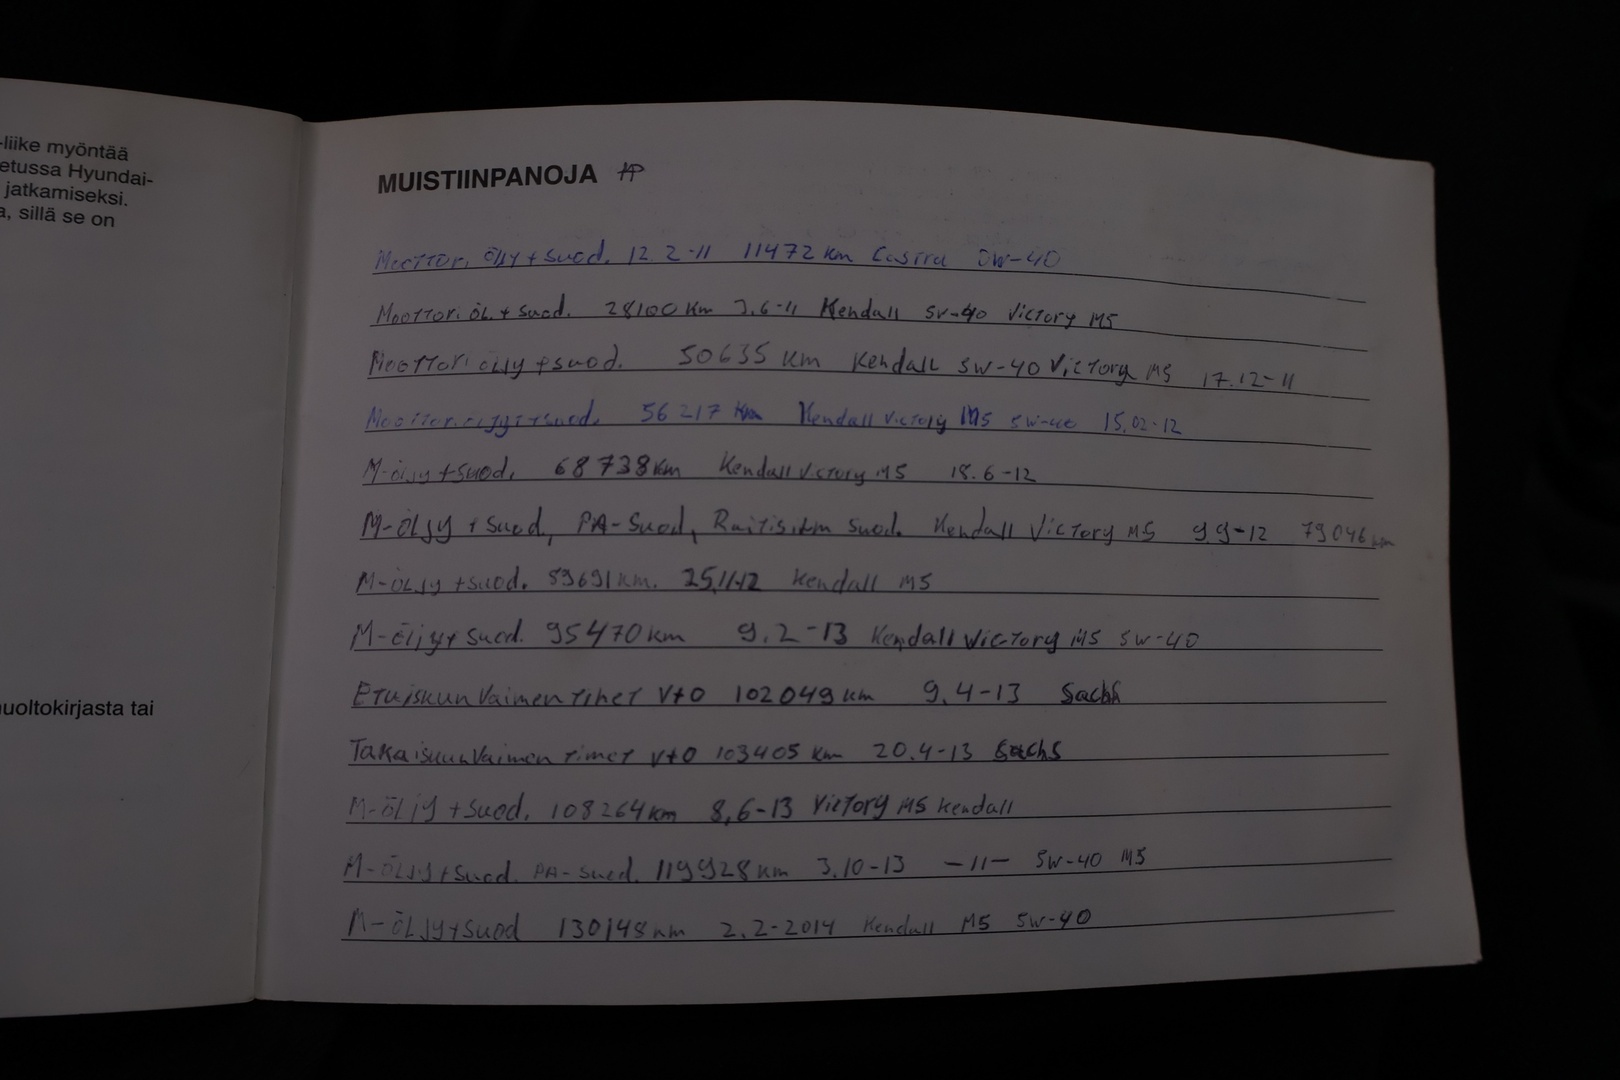 -liike myöntää
etussa Hyundai-
jatkamiseksi.
a, sillä se on
uoltokirjasta tai
MUISTIINPANOJA
Moottori öljy + suod. 12.2-11 11472 km Castrol 0W-40
Moottori öl. + suod. 28100 km 3.6-11 Kendall 5W-40 Victory M5
Moottori öljy + suod. 50635 km Kendall 5W-40 Victory M5 17.12-11
Moottori öljy + suod. 56217 km Kendall Victory M5 5W-40 15.02.12
M-öljy + suod. 68738 km Kendall Victory M5 18.6-12
M-ÖLJY + Suod, PA-Suod, Raitisilm suod. Kendall Victory M5 9.9-12 79046 km
M-ÖLJy + suod. 89691 km. 25.11-12 Kendall M5
M-öljy + suod. 95470 km 9.2-13 Kendall Victory M5 5W-40
Etuiskunvaimentimet V+O 102049 km 9.4-13 Sachs
Takaiskunvaimentimet V+O 103405 km 20.4-13 Sachs
M-ÖLjy + suod. 108264 km 8.6-13 Victory M5 Kendall
M-ÖLJy + suod. PA-suod. 119928 km 3.10-13 -11- 5W-40 M5
M-ÖLJy + suod 130148 km 2.2-2014 Kendall M5 5W-40